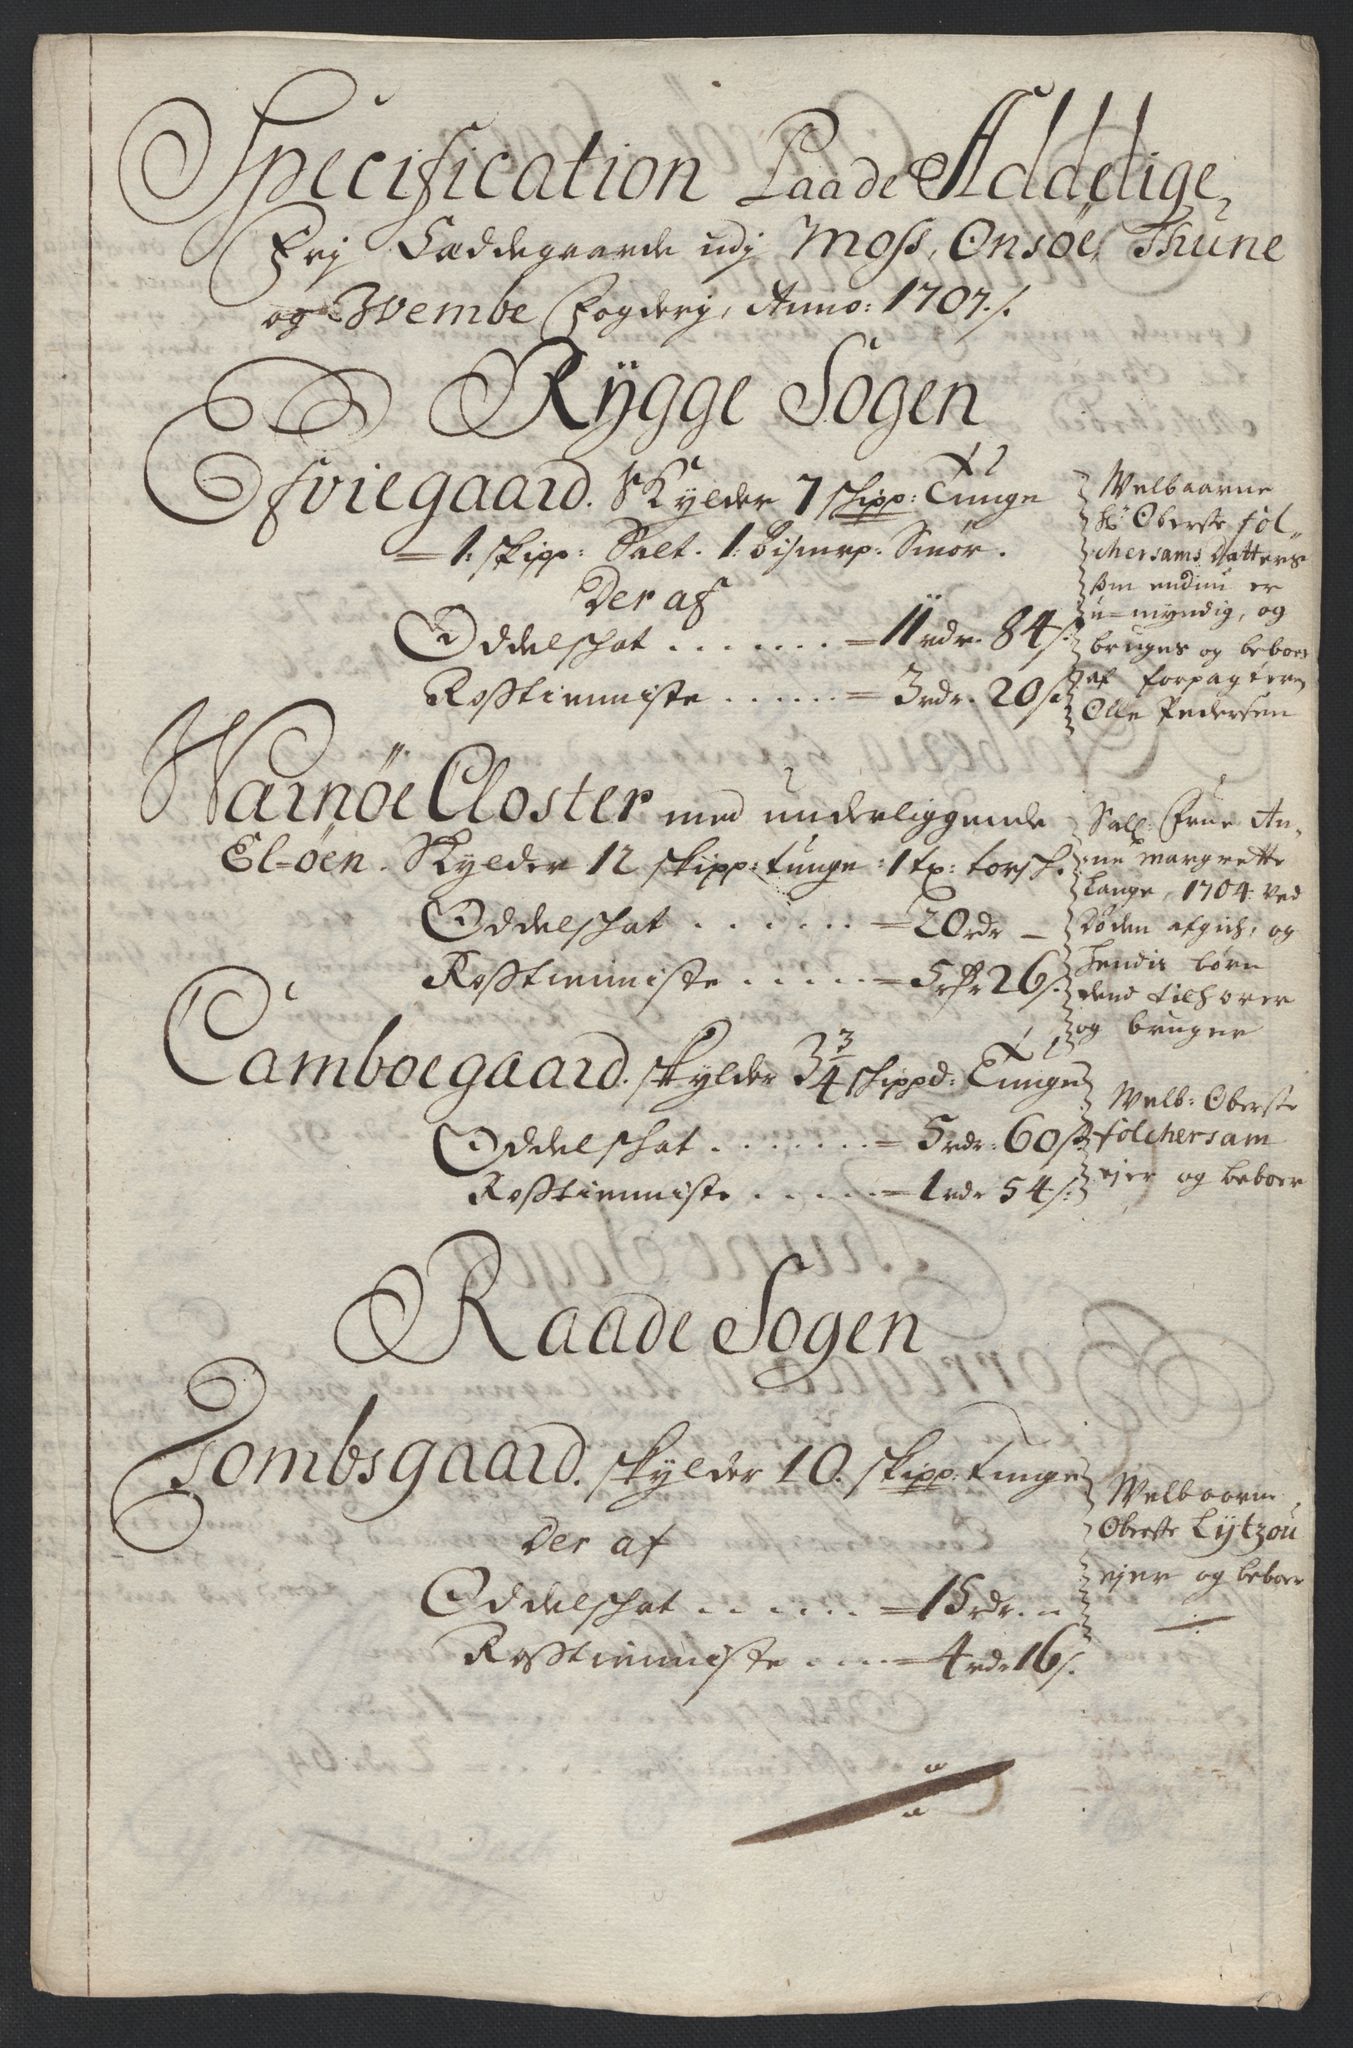 Specification Paa de Addelige
Frj Sæddegaarde udj Moss, Onsøe, Thune
og Wembe Fogderj, Anno: 1707 ./.
Rÿgge Sogen
Efviegaard. Skylder 7 skipp: Tunge
1: skipp: Salt. 1: bismrp: Smør.
Der af
Oddelschat . . . . . . . = 11 rdr. 84 s.
Rosstienniste . . . . . . = 3 rdr. 20 s.
Welbaarne
Hr Oberste fol-
chersams datters
som endnu er
u-myndig, og
bruges og beboes
af forpagteren
Olle Pedersen
Warnøe Closter med underliggende
El-øen. Skylder 12 skipp: tunge: 1 tx: torsch.
Oddelschat . . . . . . = 20 rdr —
Rosstienniste . . . . . = 5 rdr 26 s.
Sall: Frue An-
ne Margrette
Lange, 1704 ved
døden afgich, og
hendis børn
dend tilhører
og bruger
Camboegaard. skylder 3 3/4 schippd: Tunge
Oddelschat . . . . . . . = 5 rdr: 60 s
Rosstienniste . . . . . = 1 rdr 54 s.
Welb: Oberste
folchersam
ejer og beboer
Raade Sogen
Tombsgaard. skylder 10. skipp: tunge
Der af
Oddelschat . . . . . . = 15 rdr. —
Rosstienniste . . . . = 4 rdr 16 s.
Welbaarne
Oberste Lÿtzou
ejer og beboer